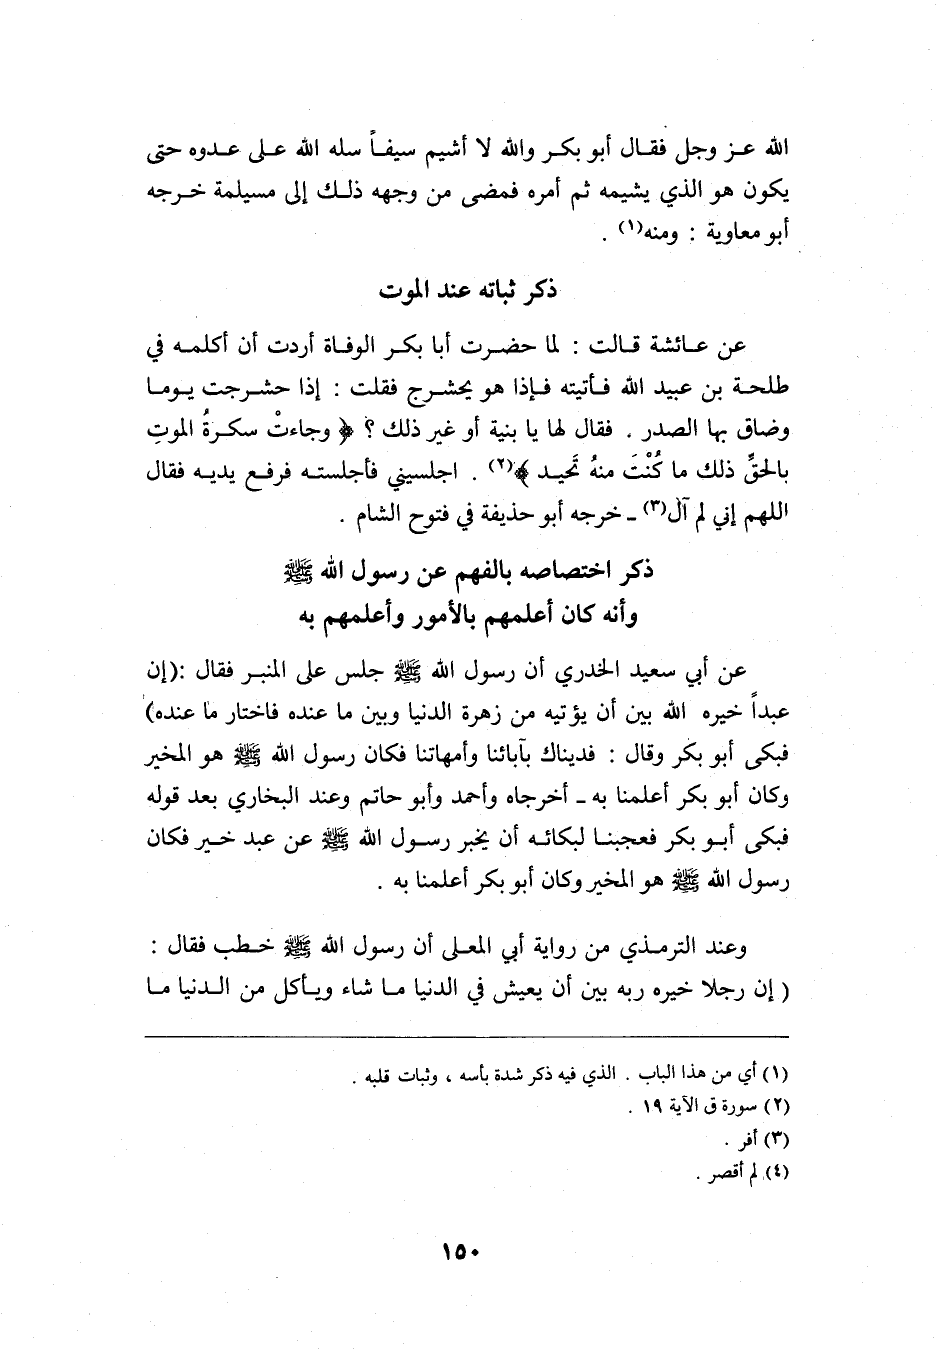 الله عز وجل فقال أبو بكر والله لا أشيم سيفاً سله الله على عدوه حتى
يكون هو الذي يشيمه ثم أمره فمضى من وجهه ذلك إلى مسيلمة خرجه
أبو معاوية : ومنه(١) .
ذكر ثباته عند الموت
عن عائشة قالت : لما حضرت أبا بكر الوفاة أردت أن أكلمه في
طلحة بن عبيد الله فأتيته فإذا هو يحشرج فقلت : إذا حشرجت يوما
وضاق بها الصدر . فقال لها يا بنية أو غير ذلك ؟ ﴿ وجاءتْ سكرةُ الموتِ
بالحقِّ ذلك ما كُنْتَ منهُ تَحيد ﴾(٢) . اجلسيني فأجلسته فرفع يديه فقال
اللهم إني لم آل(٣) ـ خرجه أبو حذيفة في فتوح الشام .
ذكر اختصاصه بالفهم عن رسول الله ﷺ
وأنه كان أعلمهم بالأمور وأعلمهم به
عن أبي سعيد الخدري أن رسول الله ﷺ جلس على المنبر فقال :(إن
عبداً خيره الله بين أن يؤتيه من زهرة الدنيا وبين ما عنده فاختار ما عنده)
فبكى أبو بكر وقال : فديناك بآبائنا وأمهاتنا فكان رسول الله ﷺ هو المخير
وكان أبو بكر أعلمنا به ـ أخرجاه وأحمد وأبو حاتم وعند البخاري بعد قوله
فبكى أبو بكر فعجبنا لبكائه أن يخبر رسول الله ﷺ عن عبد خير فكان
رسول الله ﷺ هو المخير وكان أبو بكر أعلمنا به .
وعند الترمذي من رواية أبي المعلى أن رسول الله ﷺ خطب فقال :
( إن رجلا خيره ربه بين أن يعيش في الدنيا ما شاء ويأكل من الدنيا ما
(١) أي من هذا الباب . الذي فيه ذكر شدة بأسه ، وثبات قلبه .
(٢) سورة ق الآية ١٩ .
(٣) أفر .
(٤) لم أقصر .
١٥٠